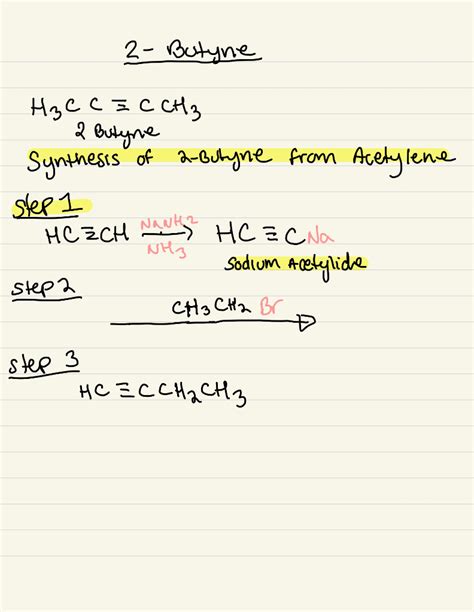 2- Butyne
H3C C ≡ C CH3
2 Butyne
Synthesis of 2-Butyne from Acetylene
Step 1
HC≡CH NaNH2 NH3 HC ≡ CNa
Sodium Acetylide
step 2
CH3CH2 Br
step 3
HC ≡CCH2CH3